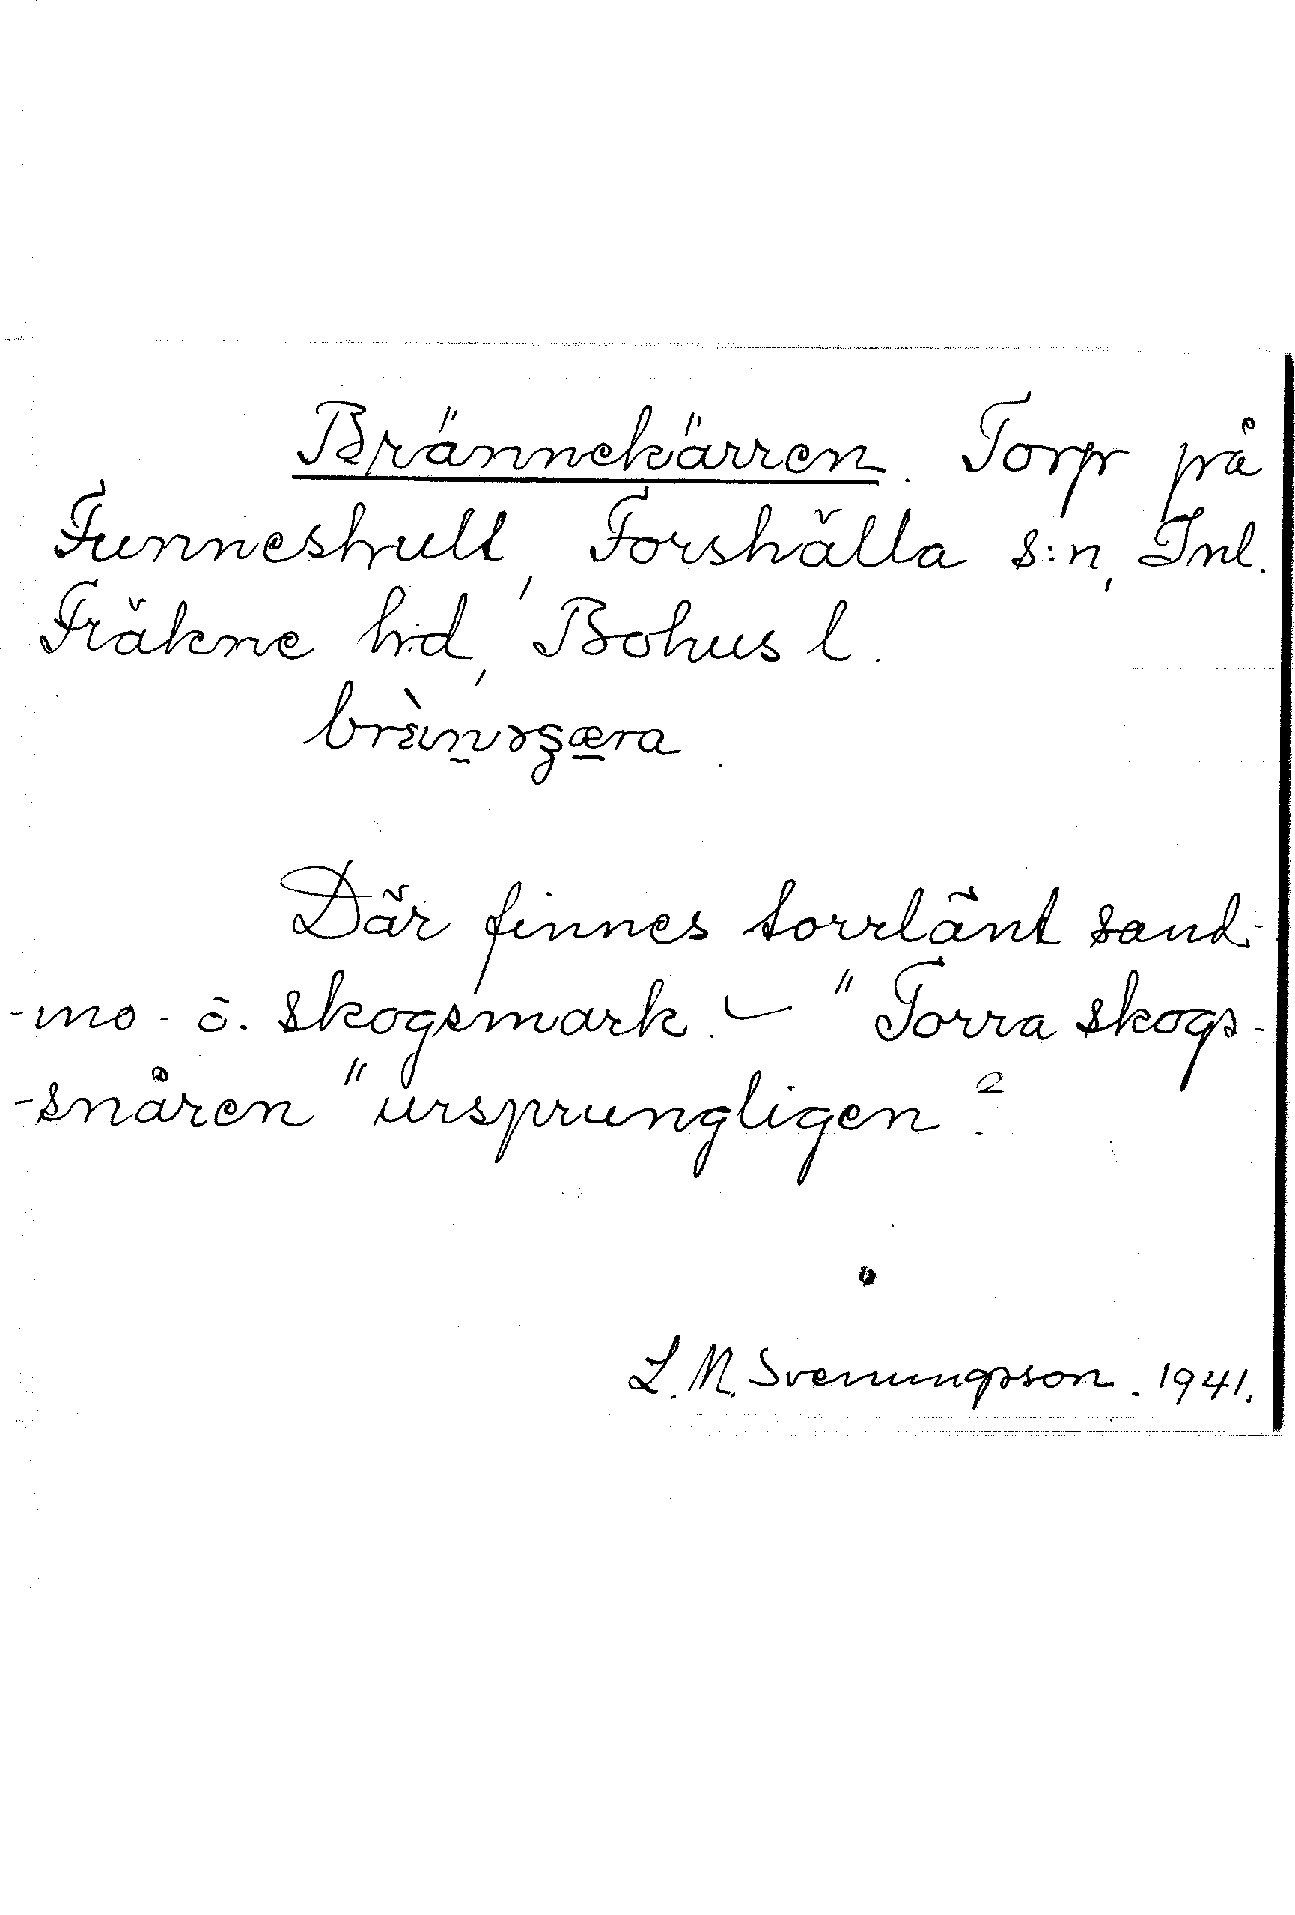 Brännekärren. Torp på
Funneshult, Forshälla s:n, Inl.
Fräkne hd, Bohus l.
Där finnes torrlänt sand-
-mo- o. skogsmark. – "Torra skogs-
-snåren" ursprungligen?
L. M. Svenungsson. 1941.